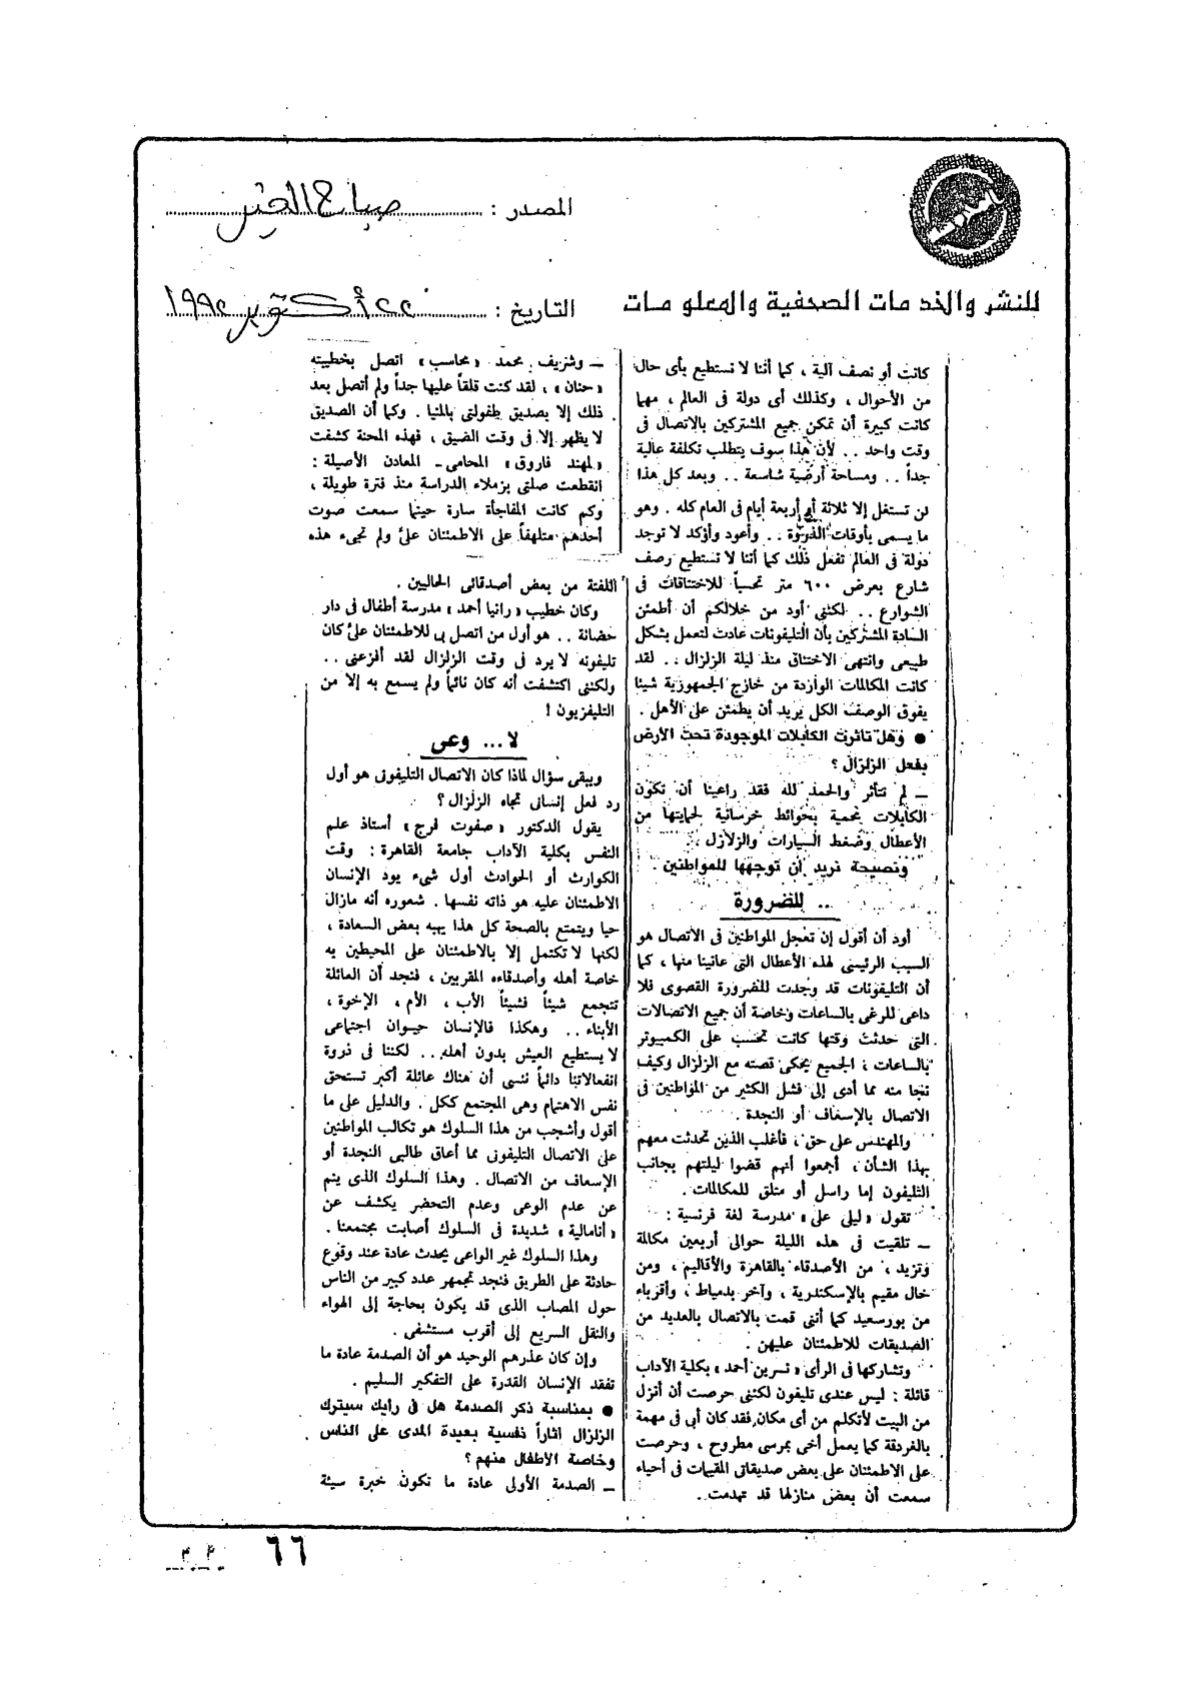 المصدر : صباح الخير
للنشر والخدمات الصحفية والمعلومات
التاريخ : ٢٢ أكتوبر ١٩٩٢
كانت أو نصف آلية ، كما أننا لا نستطيع بأى حال
من الأحوال ، وكذلك أى دولة فى العالم ، مهما
كانت كبيرة أن تمكن جميع المشتركين بالاتصال فى
وقت واحد .. لأن هذا سوف يتطلب تكلفة عالية
جداً .. ومساحة أرضية شاسعة .. وبعد كل هذا
لن تستغل إلا ثلاثة أو أربعة أيام فى العام كله . وهو
ما يسمى بأوقات الذروة .. وأعود وأؤكد لا توجد
دولة فى العالم تفعل ذلك كما أننا لا نستطيع رصف
شارع بعرض ٦٠٠ متر تحسباً للاختناقات فى
الشوارع .. لكننى أود من خلالكم أن أطمئن
السادة المشتركين بأن التليفونات عادت لتعمل بشكل
طبيعى وانتهى الاختناق منذ ليلة الزلزال .. لقد
كانت المكالمات الواردة من خارج الجمهورية شيئا
يفوق الوصف الكل يريد أن يطمئن على الأهل .
● وهل تأثرت الكابلات الموجودة تحت الأرض
بفعل الزلزال ؟
ــ لم تتأثر والحمد لله فقد راعينا أن تكون
الكابلات محمية بحوائط خرسانية لحمايتها من
الأعطال وضغط السيارات والزلازل .
ونصيحة نريد أن توجهها للمواطنين .
.. للضرورة
أود أن أقول إن تعجل المواطنين فى الاتصال هو
السبب الرئيسى لهذه الأعطال التى عانينا منها ، كما
أن التليفونات قد وجدت للضرورة القصوى فلا
داعى للرغى بالساعات وخاصة أن جميع الاتصالات
التى حدثت وقتها كانت تحسب على الكمبيوتر
بالساعات ، الجميع يحكى قصته مع الزلزال وكيف
نجا منه مما أدى إلى فشل الكثير من المواطنين فى
الاتصال بالإسعاف أو النجدة .
والمهندس على حق ، فأغلب الذين تحدثت معهم
بهذا الشأن ، أجمعوا أنهم قضوا ليلتهم بجانب
التليفون إما راسل أو متلق للمكالمات .
تقول « ليلى على » مدرسة لغة فرنسية :
ــ تلقيت فى هذه الليلة حوالى أربعين مكالمة
وتزيد ، من الأصدقاء بالقاهرة والأقاليم ، ومن
خال مقيم بالإسكندرية ، وآخر بدمياط ، وأقرباء
من بورسعيد كما أننى قمت بالاتصال بالعديد من
الصديقات للاطمئنان عليهن .
وتشاركها فى الرأى « نسرين أحمد » بكلية الآداب
قائلة : ليس عندى تليفون لكننى حرصت أن أنزل
من البيت لأتكلم من أى مكان فقد كان أبى فى مهمة
بالغردقة كما يعمل أخى بمرسى مطروح ، وحرصت
على الاطمئنان على بعض صديقاتى المقيمات فى أحياء
سمعت أن بعض منازلها قد تهدمت .
ــ وشريف محمد « محاسب » اتصل بخطيبته
« حنان » ، لقد كنت قلقاً عليها جداً ولم أتصل بعد
ذلك إلا بصديق طفولتى بالمنيا . وكما أن الصديق
لا يظهر إلا فى وقت الضيق ، فهذه المحنة كشفت
« لمهند فاروق » المحامى ــ المعادن الأصيلة :
انقطعت صلتى بزملاء الدراسة منذ فترة طويلة ،
وكم كانت المفاجأة سارة حينما سمعت صوت
أحدهم متلهفاً على الاطمئنان علىّ ولم تجىء هذه
اللفتة من بعض أصدقائى الحاليين .
وكان خطيب « رانيا أحمد » مدرسة أطفال فى دار
حضانة .. هو أول من اتصل بى للاطمئنان علىّ كان
تليفونه لا يرد فى وقت الزلزال لقد أفزعنى ..
ولكنى اكتشفت أنه كان نائماً ولم يسمع به إلا من
التليفزيون !
لا ... وعى
ويبقى سؤال لماذا كان الاتصال التليفونى هو أول
رد فعل إنسانى تجاه الزلزال ؟
يقول الدكتور « صفوت فرج » أستاذ علم
النفس بكلية الآداب جامعة القاهرة : وقت
الكوارث أو الحوادث أول شىء يود الإنسان
الاطمئنان عليه هو ذاته نفسها . شعوره أنه مازال
حيا ويتمتع بالصحة كل هذا يهبه بعض السعادة ،
لكنها لا تكتمل إلا بالاطمئنان على المحيطين به
خاصة أهله وأصدقاءه المقربين ، فنجد أن العائلة
تتجمع شيئاً فشيئاً الأب ، الأم ، الإخوة ،
الأبناء .. وهكذا فالإنسان حيوان اجتماعى
لا يستطيع العيش بدون أهله .. لكننا فى ذروة
انفعالاتنا دائماً ننسى أن هناك عائلة أكبر تستحق
نفس الاهتمام وهى المجتمع ككل . والدليل على ما
أقول وأشجب من هذا السلوك هو تكالب المواطنين
على الاتصال التليفونى مما أعاق طالبى النجدة أو
الإسعاف من الاتصال . وهذا السلوك الذى يتم
عن عدم الوعى وعدم التحضر يكشف عن
« أنامالية » شديدة فى السلوك أصابت مجتمعنا .
وهذا السلوك غير الواعى يحدث عادة عند وقوع
حادثة على الطريق فنجد تجمهر عدد كبير من الناس
حول المصاب الذى قد يكون بحاجة إلى الهواء
والنقل السريع إلى أقرب مستشفى .
وإن كان عذرهم الوحيد هو أن الصدمة عادة ما
تفقد الإنسان القدرة على التفكير السليم .
● بمناسبة ذكر الصدمة هل فى رأيك سيترك
الزلزال آثاراً نفسية بعيدة المدى على الناس
وخاصة الأطفال منهم ؟
ــ الصدمة الأولى عادة ما تكون خبرة سيئة
٦٦